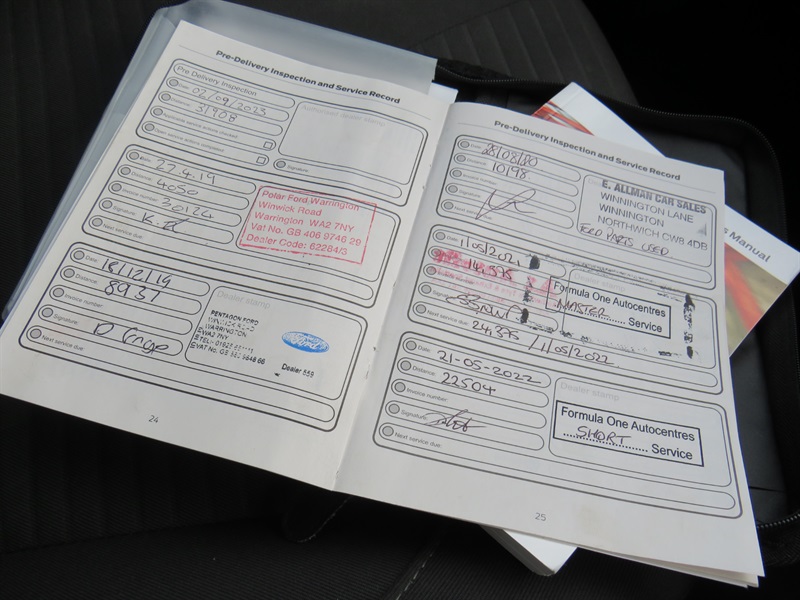 Pre-Delivery Inspection and Service Record
Pre Delivery Inspection
Date: 02/09/2023
Distance: 31908
Signature:
Date: 27.4.19
Distance: 4050
Invoice number: 30124
Signature: K.
Next service due:
Polar Ford Warrington
Winwick Road
Warrington WA2 7NY
Vat No. GB 406 9746 29
Dealer Code: 62284/3
Date: 18/12/19
Distance: 8937
Invoice number:
Signature:
Next service due:
Dealer stamp
PENTAGON FORD
WARRINGTON
WA2 7NY
Ford
Dealer 859
24
Pre-Delivery Inspection and Service Record
Date: 28/08/20
Distance: 10198
Invoice number:
Signature:
Next service due:
E. ALLMAN CAR SALES
WINNINGTON LANE
WINNINGTON
NORTHWICH CW8 4DB
FORD PARTS USED
Date: 11/05/2021
14,375
Next service due: 24,375 / 11/05/2022.
Formula One Autocentres
MASTER Service
Date: 21-05-2022
Distance: 22504
Invoice number:
Signature:
Next service due:
Dealer stamp
Formula One Autocentres
SHORT Service
25
Manual